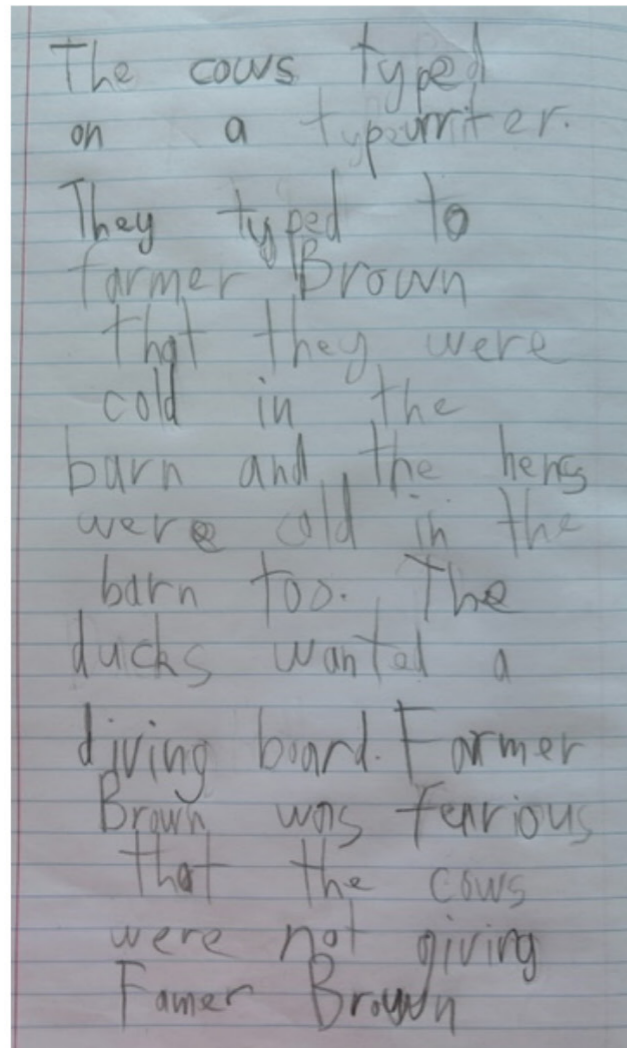 The cows typed
on a typewriter.
They typed to
farmer Brown
that they were
cold in the
barn and the hens
were cold in the
barn too. The
ducks wanted a
diving board. Farmer
Brown was fearious
that the cows
were not giving
Famer Brown